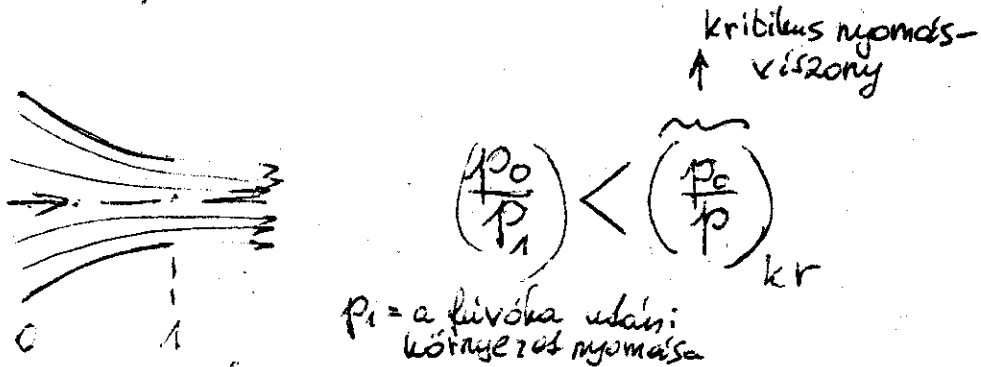 kritikus nyomás-
viszony
(p₀/p₁) < (p₀/p)kr
p₁ = a fúvóka utáni
környezet nyomása
0 1